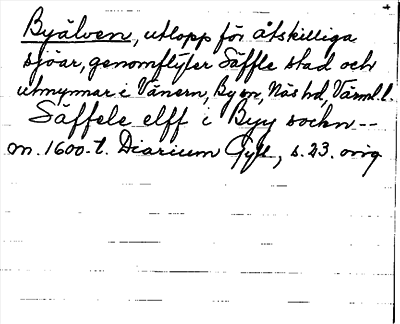 Byälven, utlopp för åtskilliga
sjöar, genomflyter Säffle stad och
utmynnar i Vänern, By sn, Näs hd, Värml. l.
Säffele elff i Byy sockn--
m. 1600-t. Diarium Gyll., s. 23. orig